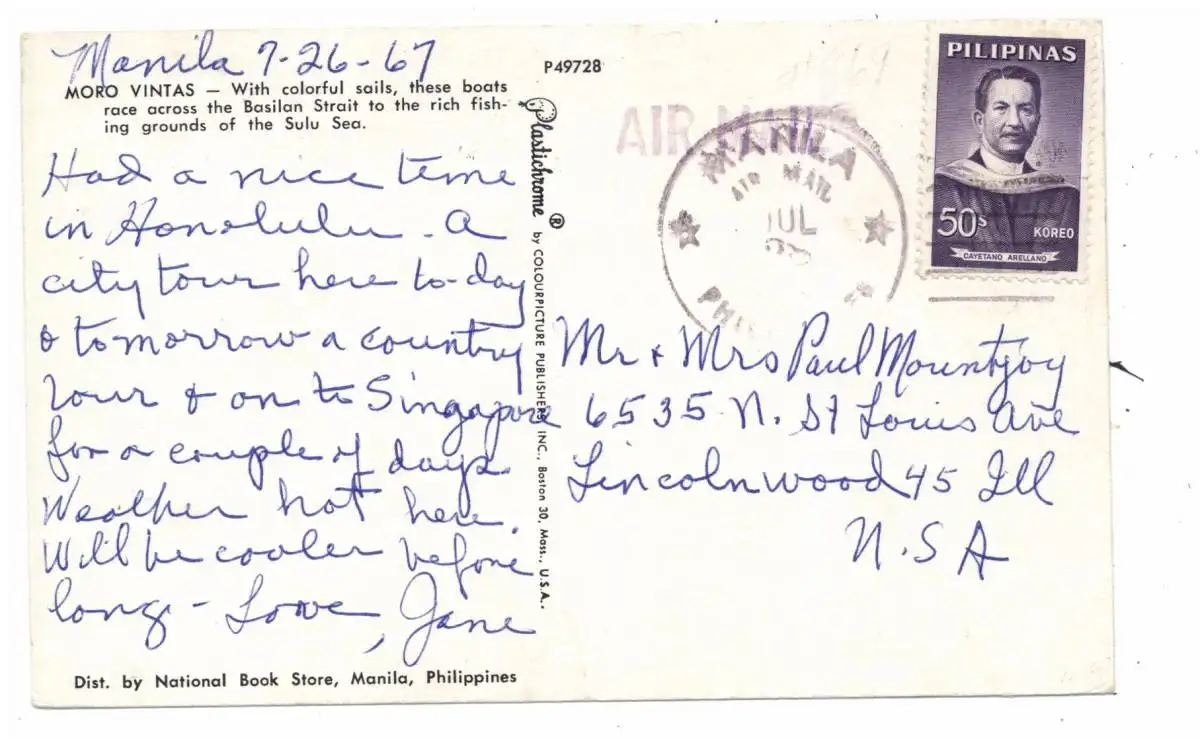 Manila 7-26-67
MORO VINTAS — With colorful sails, these boats
race across the Basilan Strait to the rich fish-
ing grounds of the Sulu Sea.
Had a nice time
in Honolulu. A
city tour here to-day
& tomorrow a country
tour & on to Singapore
for a couple of days.
Weather hot here.
Will be cooler before
long - Love, Jane
Dist. by National Book Store, Manila, Philippines
P49728
Plastichrome ® by COLOURPICTURE PUBLISHERS, INC., Boston 30, Mass., U.S.A.
AIR MAIL
MANILA
AIR MAIL
JUL
PILIPINAS
50s
KOREO
CAYETANO ARELLANO
Mr + Mrs Paul Mountjoy
6535 N. St Louis Ave
Lincolnwood 45 Ill
U.S A